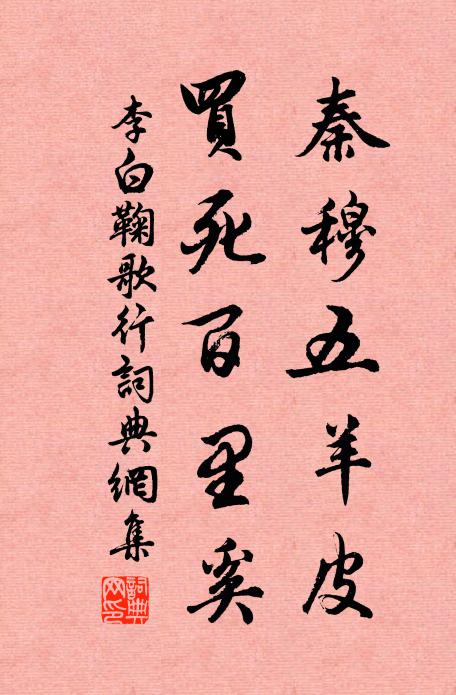 秦穆五羊皮
買死百里奚
李白鞠歌行詞典網集
詞典網印